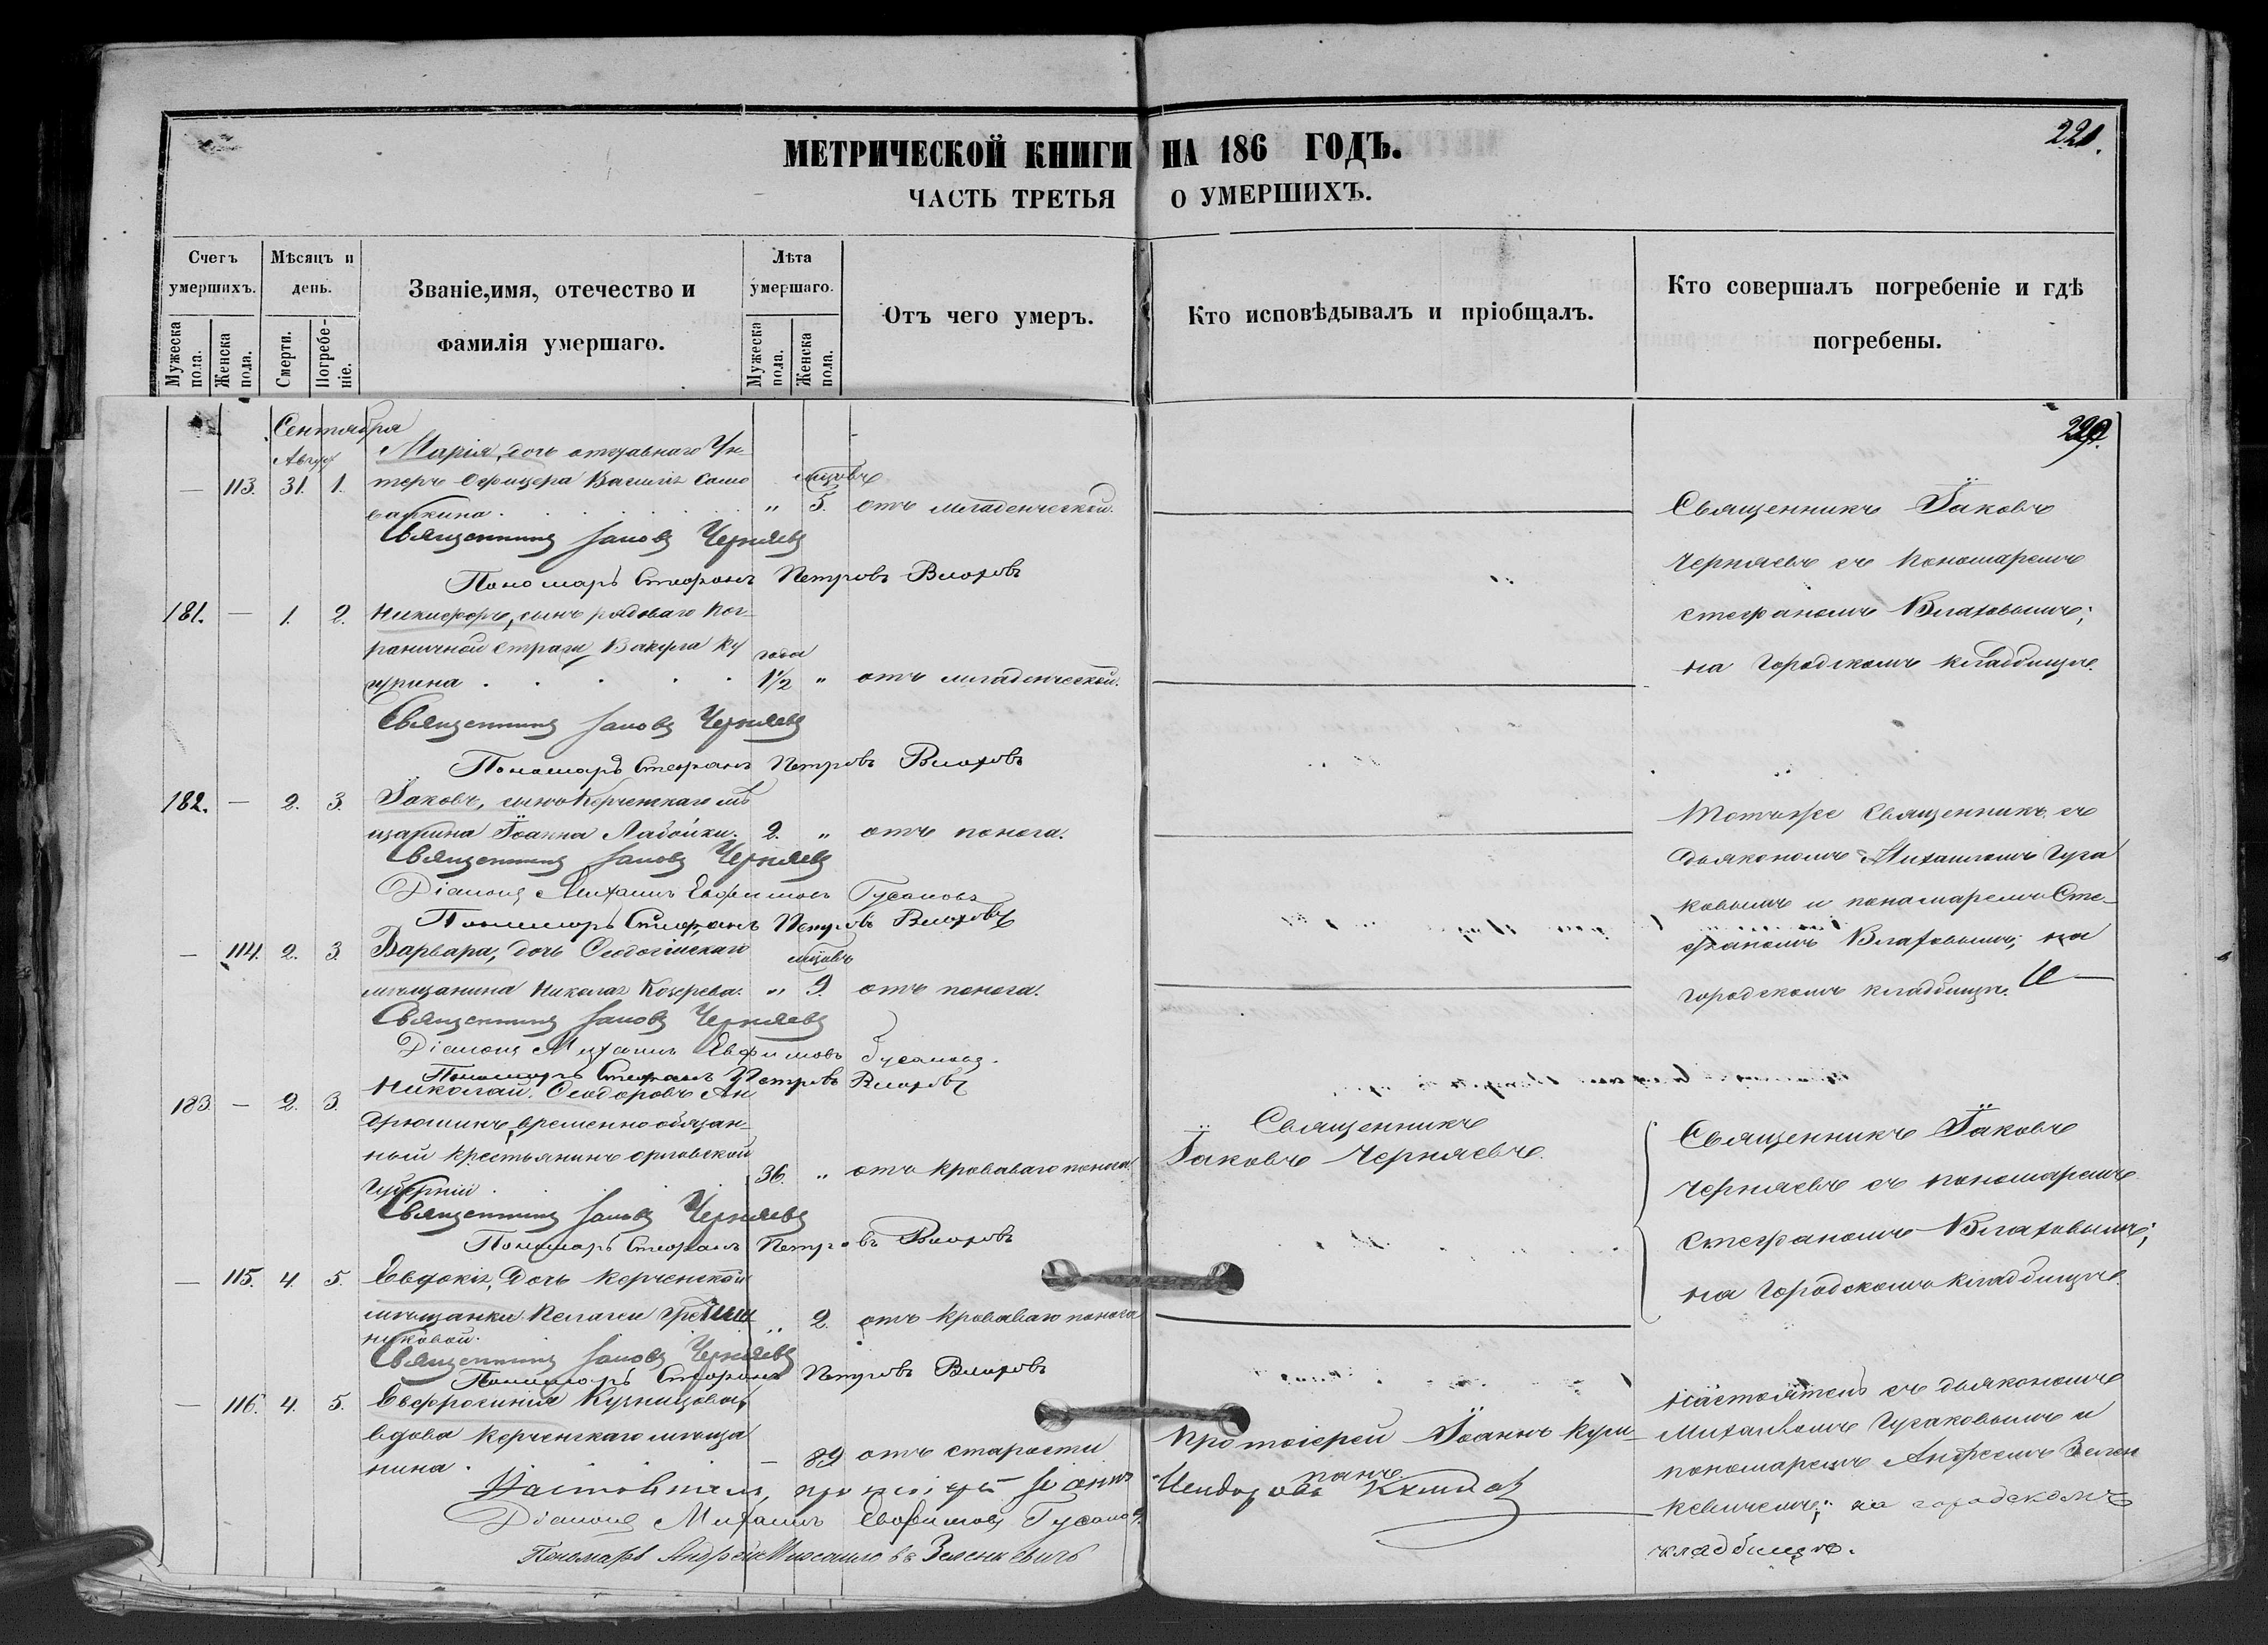 221.
МЕТРИЧЕСКОЙ КНИГИ НА 186 ГОДЪ.
ЧАСТЬ ТРЕТЬЯ О УМЕРШИХЪ.
Счетъ умершихъ.
Мужеска пола.
Женска пола.
Мѣсяцъ и день.
Смерти.
Погребе-ніе.
Званіе, имя, отечество и
фамилія умершаго.
Лѣта умершаго.
Мужеска пола.
Женска пола.
Отъ чего умеръ.
Кто исповѣдывалъ и пріобщалъ.
Кто совершалъ погребеніе и гдѣ
погребены.
Сентября
Марія, дочь отставнаго Ун-
— 113. 31. 1. теръ Офицера Василія
„ 5. отъ младенческой.
Священникъ Іаковъ Черняевъ
Пономарь Стефанъ Петровъ Влаховъ
Священникъ Іаковъ
Черняевъ съ пономаремъ
Стефаномъ Влаховымъ;
на городскомъ кладбищѣ.
181. — 1. 2. Никифоръ, сынъ рядоваго пог-
раничной стражи
года
1½ „ отъ младенческой.
Священникъ Іаковъ Черняевъ
Пономарь Стефанъ Петровъ Влаховъ
182. — 2. 3. Іаковъ, сынъ Керченскаго мѣ
щанина Іоанна Лабойки. 2. „ отъ поноса.
Священникъ Іаковъ Черняевъ
Діаконъ Михаилъ Евфимовъ Гусаковъ
Пономарь Стефанъ Петровъ Влаховъ
Тотъ же Священникъ съ
дьякономъ Михаиломъ Гуса
ковымъ и пономаремъ Сте-
фаномъ Влаховымъ; на
городскомъ кладбищѣ.
— 114. 2. 3. Варвара, дочь Ѳеодосійскаго
мѣщанина Николая Козерева. „ 9. отъ поноса.
Священникъ Іаковъ Черняевъ
Діаконъ Михаилъ Евфимовъ Гусаковъ.
Пономарь Стефанъ Петровъ Влаховъ
183. — 2. 3. Николай Ѳеодоровъ Ан
дрюшинъ, временно обязан-
ный крестьянинъ Орловской
Губерніи. 36. „ отъ кроваваго поноса.
Священникъ
Іаковъ Черняевъ.
Священникъ Іаковъ Черняевъ
Пономарь Стефанъ Петровъ Влаховъ
Священникъ Іаковъ
Черняевъ съ пономаремъ
Стефаномъ Влаховымъ;
на городскомъ кладбищѣ.
— 115. 4. 5. Евдокія, дочь Керченской
мѣщанки Пелагеи
никовой. „ 2. отъ кроваваго поноса
Священникъ Іаковъ Черняевъ
Пономарь Стефанъ Петровъ Влаховъ
— 116. 4. 5. Евфросинія Кузнецова,
вдова Керченскаго мѣща
нина. — 89 отъ старости
Протоіерей Іоаннъ
Настоятель съ дьякономъ
Михаиломъ Гусаковымъ и
пономаремъ Андреемъ Зелен
кевичемъ; на городскомъ
кладбищѣ.
Настоятель, протоіерей Іоаннъ
Діаконъ Михаилъ Евфимовъ Гусаковъ.
Пономарь Андрей Михайловъ Зеленкевичъ